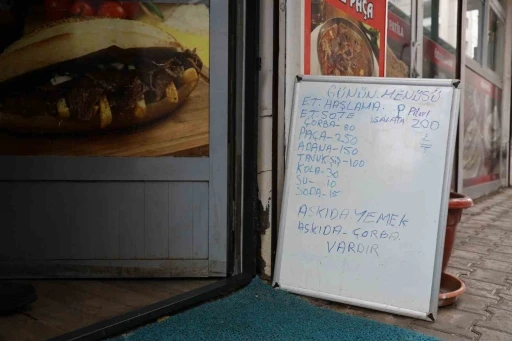 PAÇA
GÜNÜN MENÜSÜ
ET. HAŞLAMA. Pilav
ET. SOTE SALATA 200
ÇORBA-80
PAÇA-250
ADANA-150
TAVUK ŞİŞ-100
KOLA-30
SU- 10
SODA-15
ASKIDA YEMEK
ASKIDA-ÇORBA
VARDIR